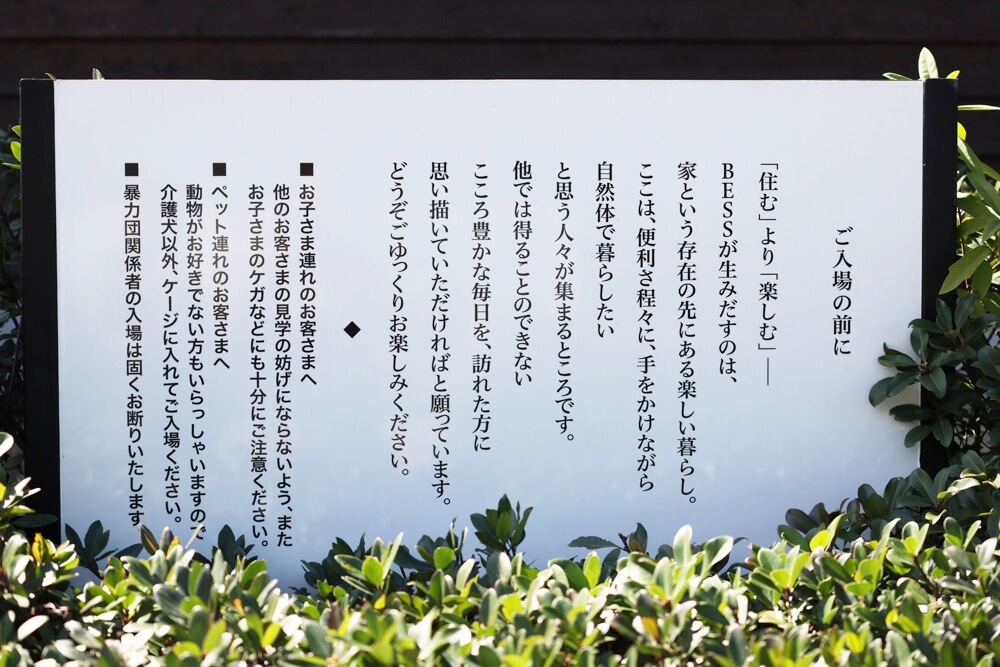 ご入場の前に
「住む」より「楽しむ」――
BESSが生みだすのは、
家という存在の先にある楽しい暮らし。
ここは、便利さ程々に、手をかけながら
自然体で暮らしたい
と思う人々が集まるところです。
他では得ることのできない
こころ豊かな毎日を、訪れた方に
思い描いていただければと願っています。
どうぞごゆっくりお楽しみください。
◆
■お子さま連れのお客さまへ
他のお客さまの見学の妨げにならないよう、また
お子さまのケガなどにも十分にご注意ください。
■ペット連れのお客さまへ
動物がお好きでない方もいらっしゃいますので
介護犬以外、ケージに入れてご入場ください。
■暴力団関係者の入場は固くお断りいたします